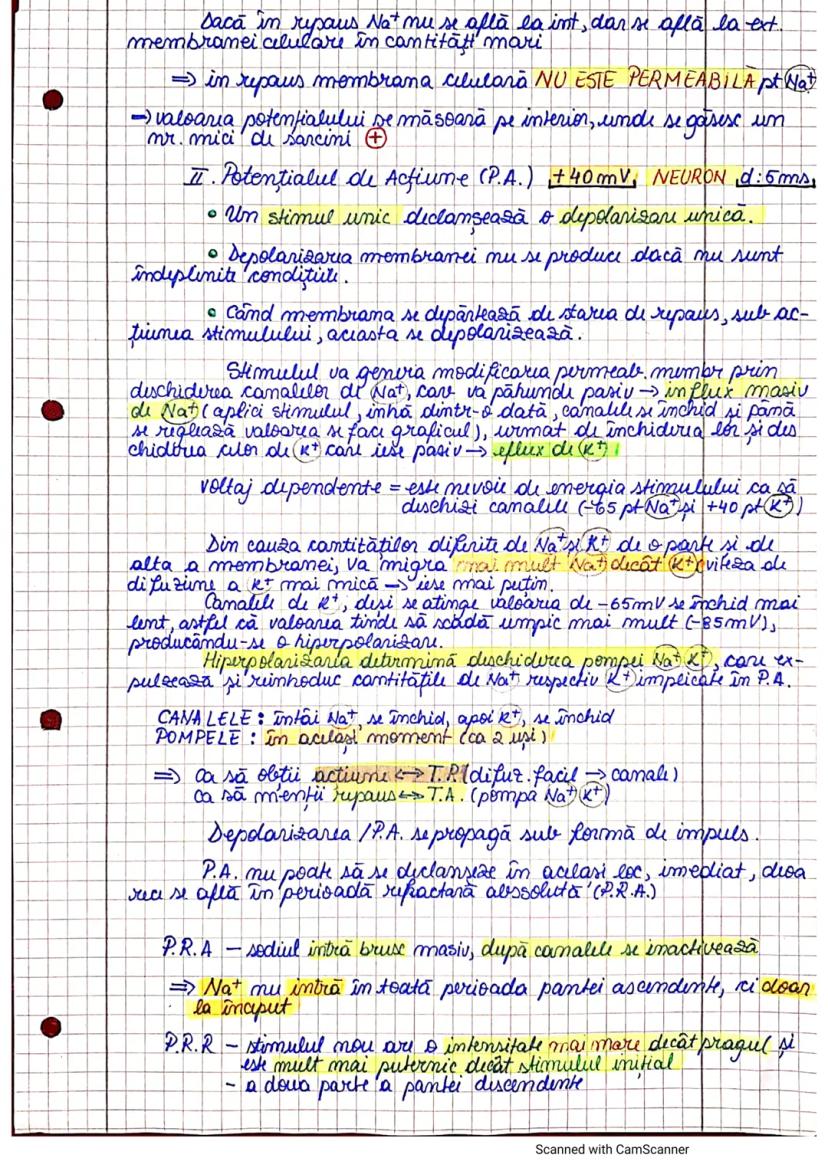 Dacă în repaus Na⁺ nu se află la int, dar se află la ext.
membranei celulare în cantități mari
⇒ în repaus membrana celulară NU ESTE PERMEABILĂ pt Na⁺
→ valoarea potențialului se măsoară pe interior, unde se găsesc un
nr. mici de sarcini ⊕
II. Potențialul de Acțiune (P.A.) +40mV, NEURON d: 5ms,
• Un stimul unic declanșează o depolarizare unică.
• Depolarizarea membranei nu se produce dacă nu sunt
îndeplinite condițiile.
• Când membrana se depărtează de starea de repaus, sub ac-
țiunea stimulului, aceasta se depolarizează.
Stimulul va genera modificarea permeab. membr prin
deschiderea canalelor de Na⁺, care va pătrunde pasiv → influx masiv
de Na⁺ (aplici stimulul, intră dintr-o dată, canalele se închid și până
se reglează valoarea se face graficul), urmat de închiderea lor și des
chiderea celor de K⁺ care iese pasiv → eflux de K⁺
voltaj dependente = este nevoie de energia stimulului ca să
deschizi canalele (-65 pt Na⁺ și +40 pt K⁺)
Din cauza cantităților diferite de Na⁺ și K⁺ de o parte si de
alta a membranei, va migra mai mult Na⁺ decât K⁺, viteza de
difuziune a K⁺ mai mică → iese mai puțin.
Canalele de K⁺, deși se atinge valoarea de -65mV se închid mai
lent, astfel că valoarea tinde să scadă umpic mai mult (-85mV),
producându-se o hiperpolarizare.
Hiperpolarizarea determină deschiderea pompei Na⁺ K⁺, care ex-
pulzează și reintroduc cantitățile de Na⁺ respectiv K⁺ implicate în P.A.
CANALELE: întâi Na⁺, se închid, apoi K⁺, se închid
POMPELE: în același moment (ca 2 uși)
⇒ ca să obții acțiune ↔ T.P. (difuz. facil → canale)
ca să menții repaus ↔ T.A. (pompa Na⁺ K⁺)
Depolarizarea /P.A. se propagă sub formă de impuls.
P.A. nu poate să se declanseze în acelasi loc, imediat, deoa
rece se află în perioadă refractară abssolută (P.R.A.)
P.R.A – sodiul intră brusc masiv, după canalele se inactivează
⇒ Na⁺ nu intră în toată perioada pantei ascendente, ci doar
la început
P.R.R – stimulul nou are o intensitate mai mare decât pragul și
este mult mai puternic decât stimulul inițial
- a doua parte a pantei descendente
Scanned with CamScanner